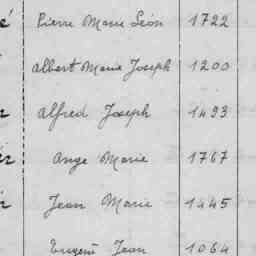 é Pierre Marie Léon 1722
Albert Marie Joseph 1200
Alfred Joseph 1493
Ange Marie 1767
Jean Marie 1445
Eugène Jean 1064